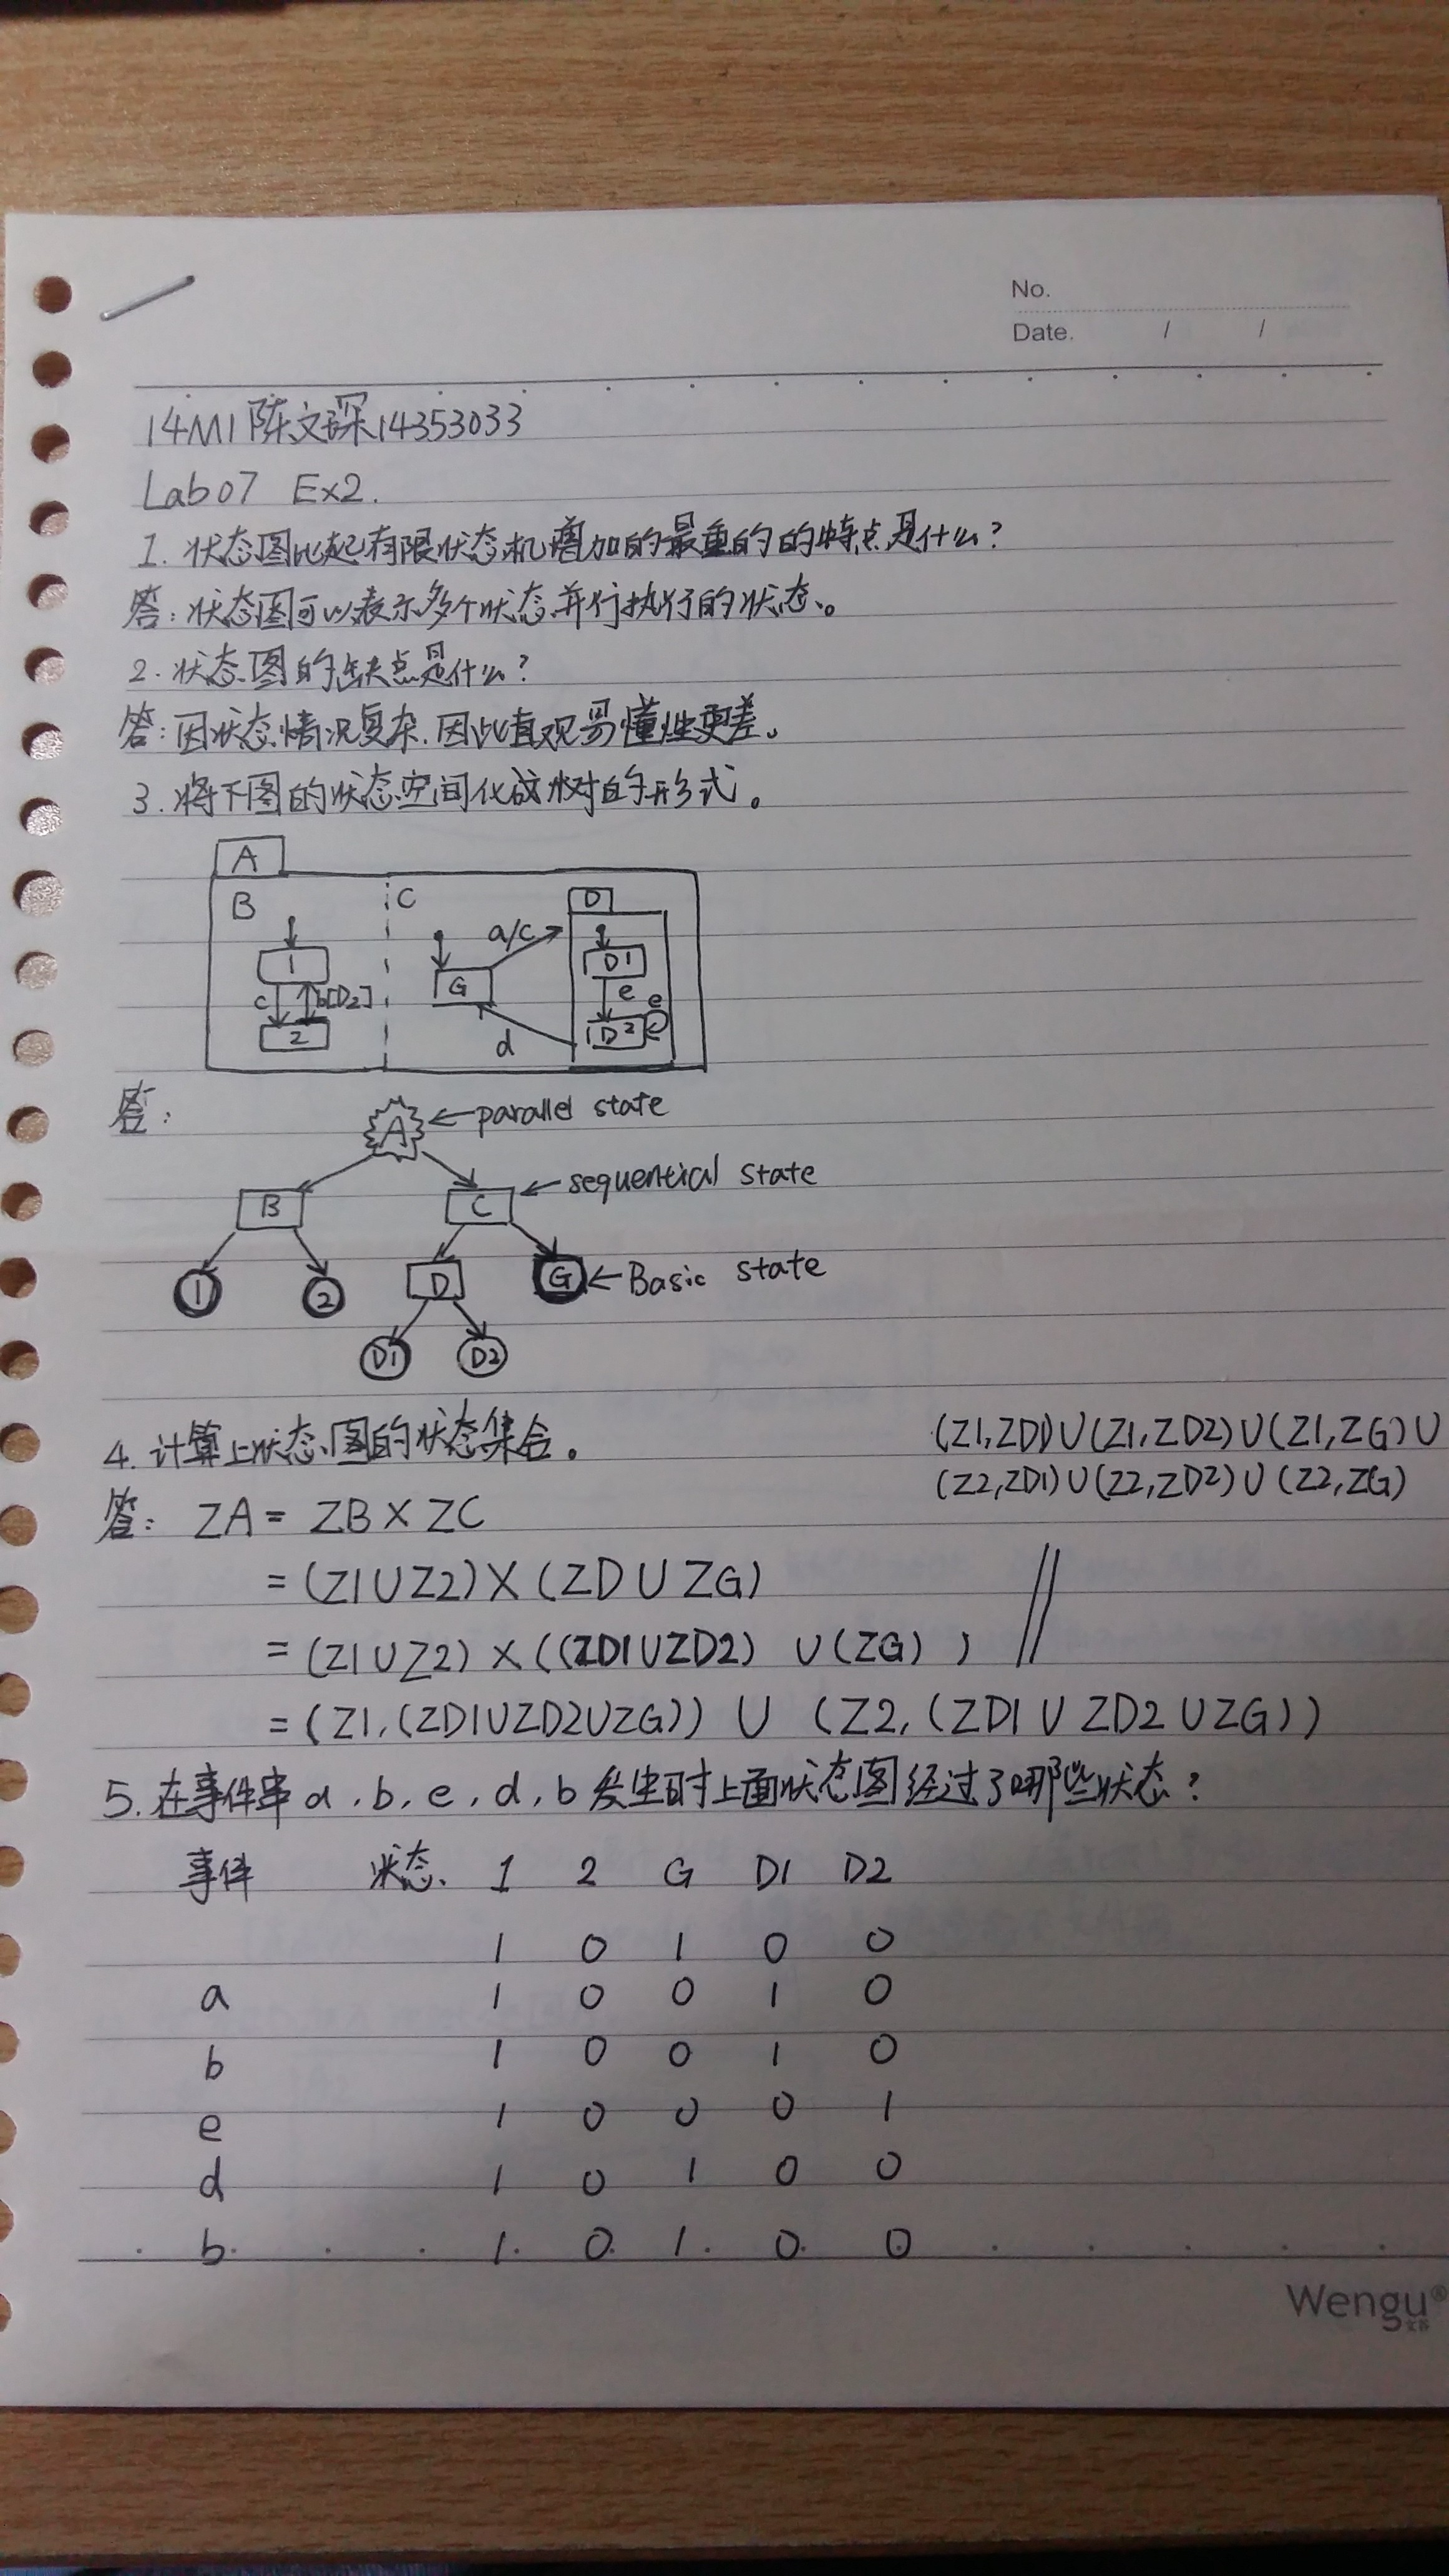 No.
Date. / /
14M1 陈文琛 14353033
Lab07 Ex2.
1. 状态图比起有限状态机增加的最重的的特点是什么?
答: 状态图可以表示多个状态并行执行的状态。
2. 状态图的缺点是什么?
答: 因状态情况复杂, 因此直观易懂性更差。
3. 将下图的状态空间化成树的形式。
A
B C D
1 a/c D1
G
c b[D2] e e
2 d D2
答:
A ← parallel state
B C ← sequential state
1 2 D G ← Basic state
D1 D2
4. 计算上状态图的状态集合。
答: ZA = ZB X ZC
= (Z1UZ2) X (ZD U ZG)
= (Z1UZ2) X ((ZD1UZD2) U (ZG) )
= (Z1, (ZD1UZD2UZG)) U (Z2, (ZD1 U ZD2 UZG))
(Z1,ZD1)U(Z1,ZD2)U(Z1,ZG)U
(Z2,ZD1)U(Z2,ZD2)U(Z2,ZG)
5. 在事件串 a, b, e, d, b 发生时上面状态图经过了哪些状态?
事件 状态 1 2 G D1 D2
1 0 1 0 0
a 1 0 0 1 0
b 1 0 0 1 0
e 1 0 0 0 1
d 1 0 1 0 0
b 1 0 1 0 0
Wengu®